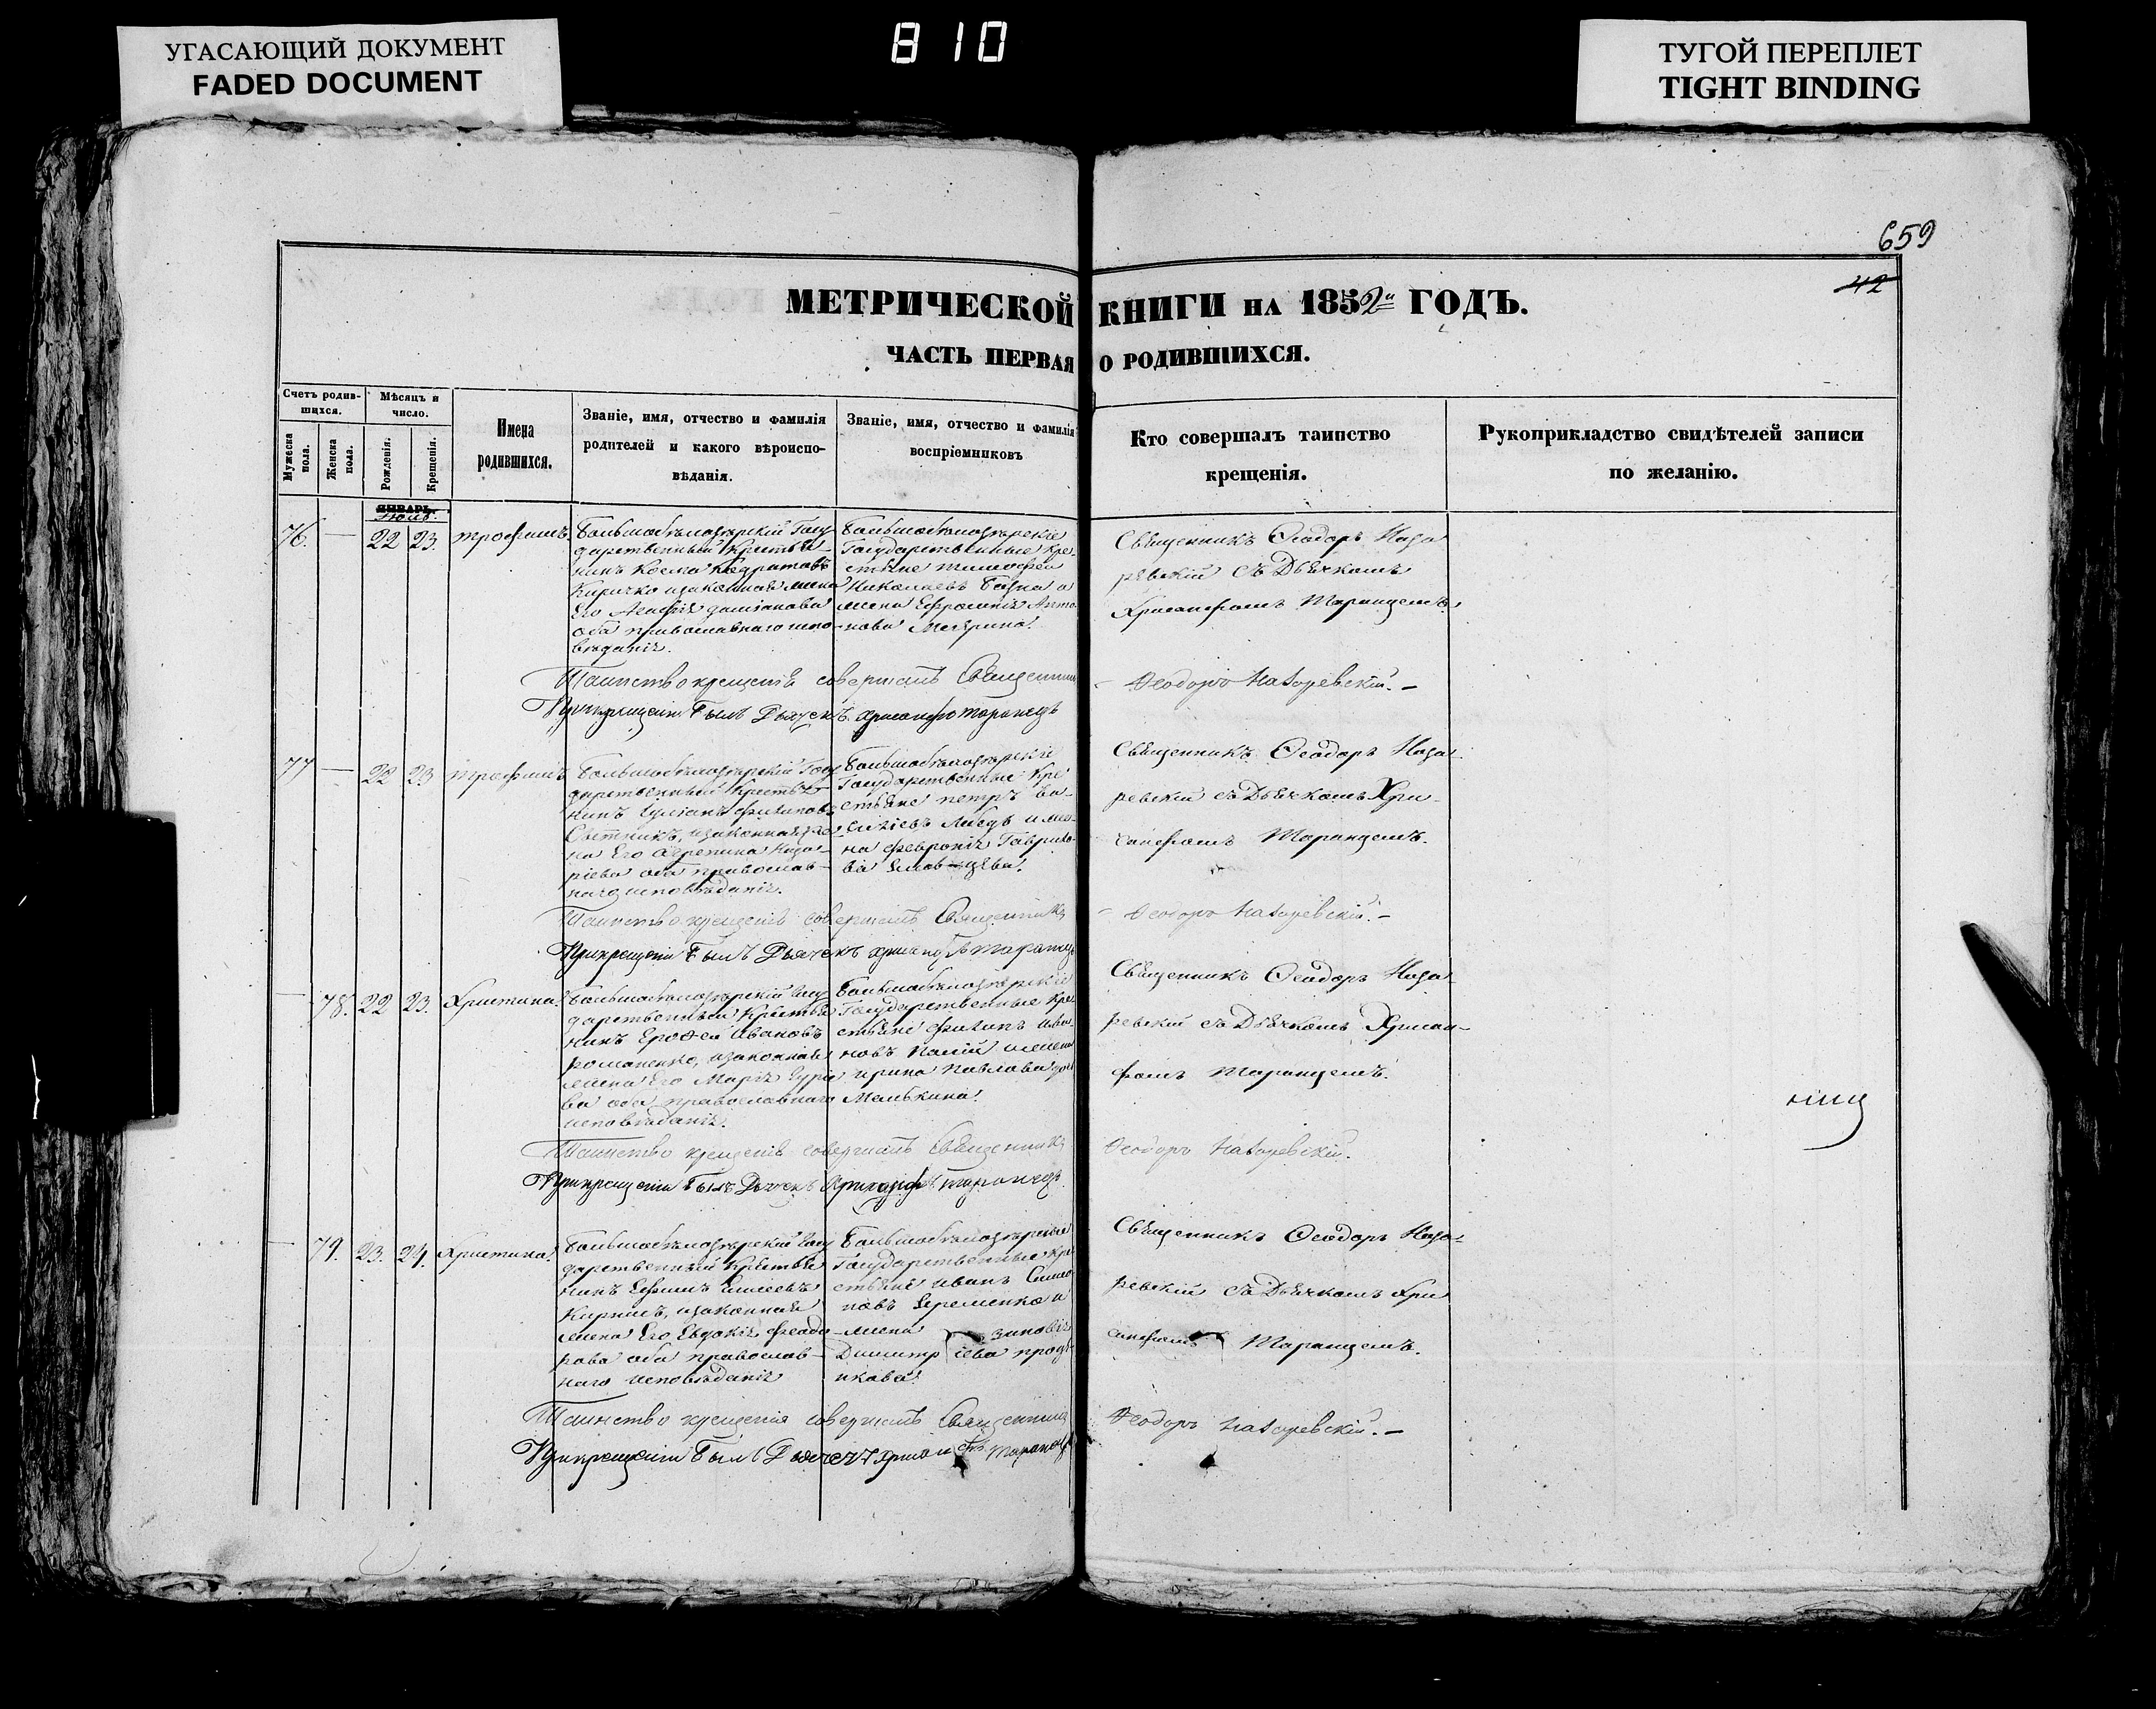 УГАСАЮЩИЙ ДОКУМЕНТ
FADED DOCUMENT
810
ТУГОЙ ПЕРЕПЛЕТ
TIGHT BINDING
659
42
МЕТРИЧЕСКОЙ КНИГИ НА 1852й ГОДЪ.
ЧАСТЬ ПЕРВАЯ О РОДИВШИХСЯ.
Счетъ родив-
шихся.
Мужеска
пола.
Женска
пола.
Мѣсяцъ и
число.
Рожденія.
Крещенія.
Имена
родившихся.
Званіе, имя, отчество и фамилія
родителей и какого вѣроиспо-
вѣданія.
Званіе, имя, отчество и фамилія
воспріемниковъ
Кто совершалъ таинство
крещенія.
Рукоприкладство свидѣтелей записи
по желанію.
ЯНВАРЬ.
76. — 22 23. Трофимъ
Большобѣлозѣрскій Госу
дарственный Крестья-
нинъ Косма
Кичко изаконная жена
Его Дамiанова
оба православнаго испо-
вѣданія.
Большобѣлозѣрскіе
Государственные Кре-
стьяне Тимофей
Николаевъ и
жена Ефросинія Анто
нова
Священникъ Ѳеодоръ Наза
ревскій съ Дьячкомъ
Хрисанфомъ Таранцемъ.
Таинство крещенія совершалъ Священникъ Ѳеодоръ Назаревскій. —
При крещеніи былъ Дьячекъ Хрисанфъ Таранецъ
77 — 22 23 Трофимъ
Большобѣлозѣрскій Госу
дарственный Крестья-
нинъ Филиповъ
изаконная же-
на Его Агрепина Наза-
ріева оба православ-
наго исповѣданія.
Большобѣлозѣрскіе
Государственные Кре
стьяне Петръ Ва-
силіевъ Лебедь и же-
на Февронія Гаврило-
ва
Священникъ Ѳеодоръ Наза-
ревскій съ Дьячкомъ Хри-
санфомъ Таранцемъ.
Таинство крещенія совершалъ Священникъ Ѳеодоръ Назаревскій. —
При крещеніи былъ Дьячекъ Хрисанфъ Таранецъ
— 78. 22 23. Христина.
Большобѣлозѣрскій Госу
дарственный Крестья
нинъ Ерофей Ивановъ
Романенко, изаконная
жена Его Марія Гурiе
ва оба православнаго
исповѣданія.
Большобѣлозѣрскіе
Государственные Кре
стьяне Филипъ Ива-
новъ
Ирина Павлова
Малькина.
Священникъ Ѳеодоръ Наза-
ревскій съ Дьячкомъ Хрисан-
фомъ Таранцемъ.
Таинство крещенія совершалъ Священникъ Ѳеодоръ Назаревскій.
При крещеніи былъ Дьячекъ Хрисанфъ Таранецъ
— 79. 23. 24. Христина.
Большобѣлозѣрскій Госу
дарственный Крестья
нинъ Ефимъ Елисеевъ
изаконная
жена Его Евдокія Феодо-
рова оба православ-
наго исповѣданія
Большобѣлозѣрскіе
Государственные Кре
стьяне Иванъ Симо
новъ Яременко и
жена Зиновія
Димитріева
Священникъ Ѳеодоръ Наза-
ревскій съ Дьячкомъ Хри
санфомъ Таранцемъ.
Таинство крещенія совершалъ Священникъ Ѳеодоръ Назаревскій. —
При крещеніи былъ Дьячекъ Хрисанфъ Таранецъ